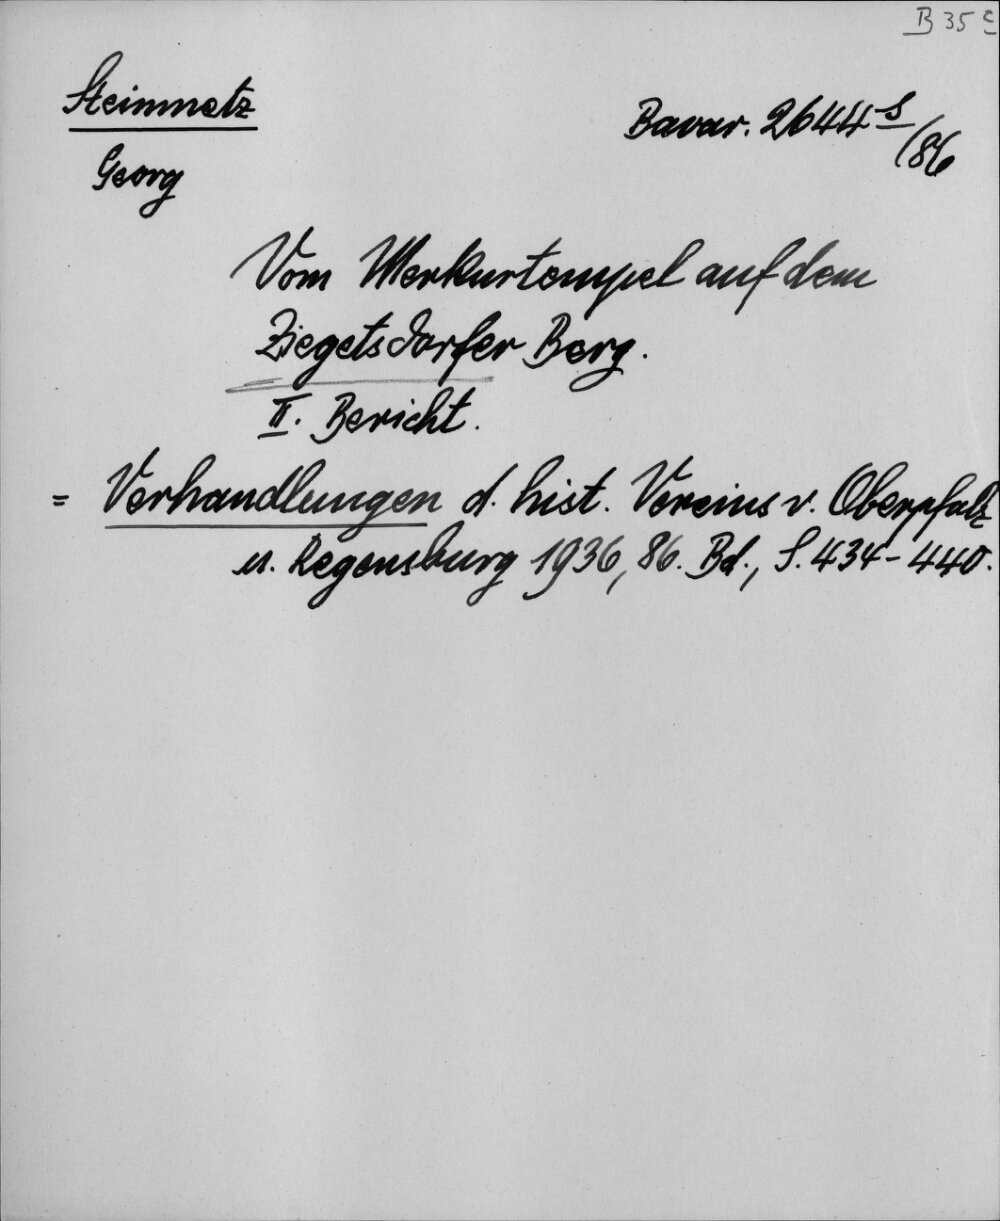 B 35 c
Steinmetz
Georg
Bavar. 2644 s
/86
Vom Merkurtempel auf dem
Ziegetsdorfer Berg.
II. Bericht.
= Verhandlungen d. hist. Vereins v. Oberpfalz
u. Regensburg 1936, 86. Bd., S. 434-440.